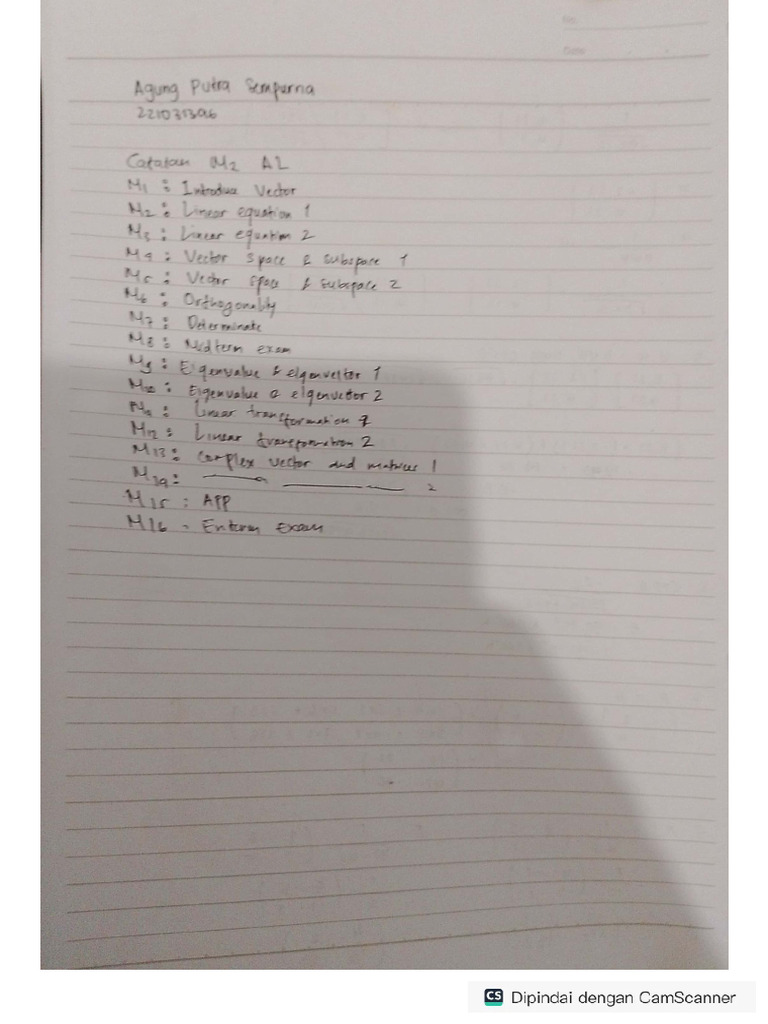 No.
Date
Agung Putra Sempurna
Catatan M2 AL
M1 : Introduce Vector
M2 : Linear equation 1
M3 : Linear equation 2
M4 : Vector space & subspace 1
M5 : Vector space & subspace 2
M6 : Orthogonality
M7 : Determinate
M8 : Midterm exam
M9 : Eigenvalue & eigenvector 1
M10 : Eigenvalue & eigenvector 2
: Linear transformation
M12 : Linear transformation 2
M13 : Complex vector and matrices 1
M14 : 2
M15 : APP
M16 - Enterm Exam
CS Dipindai dengan CamScanner